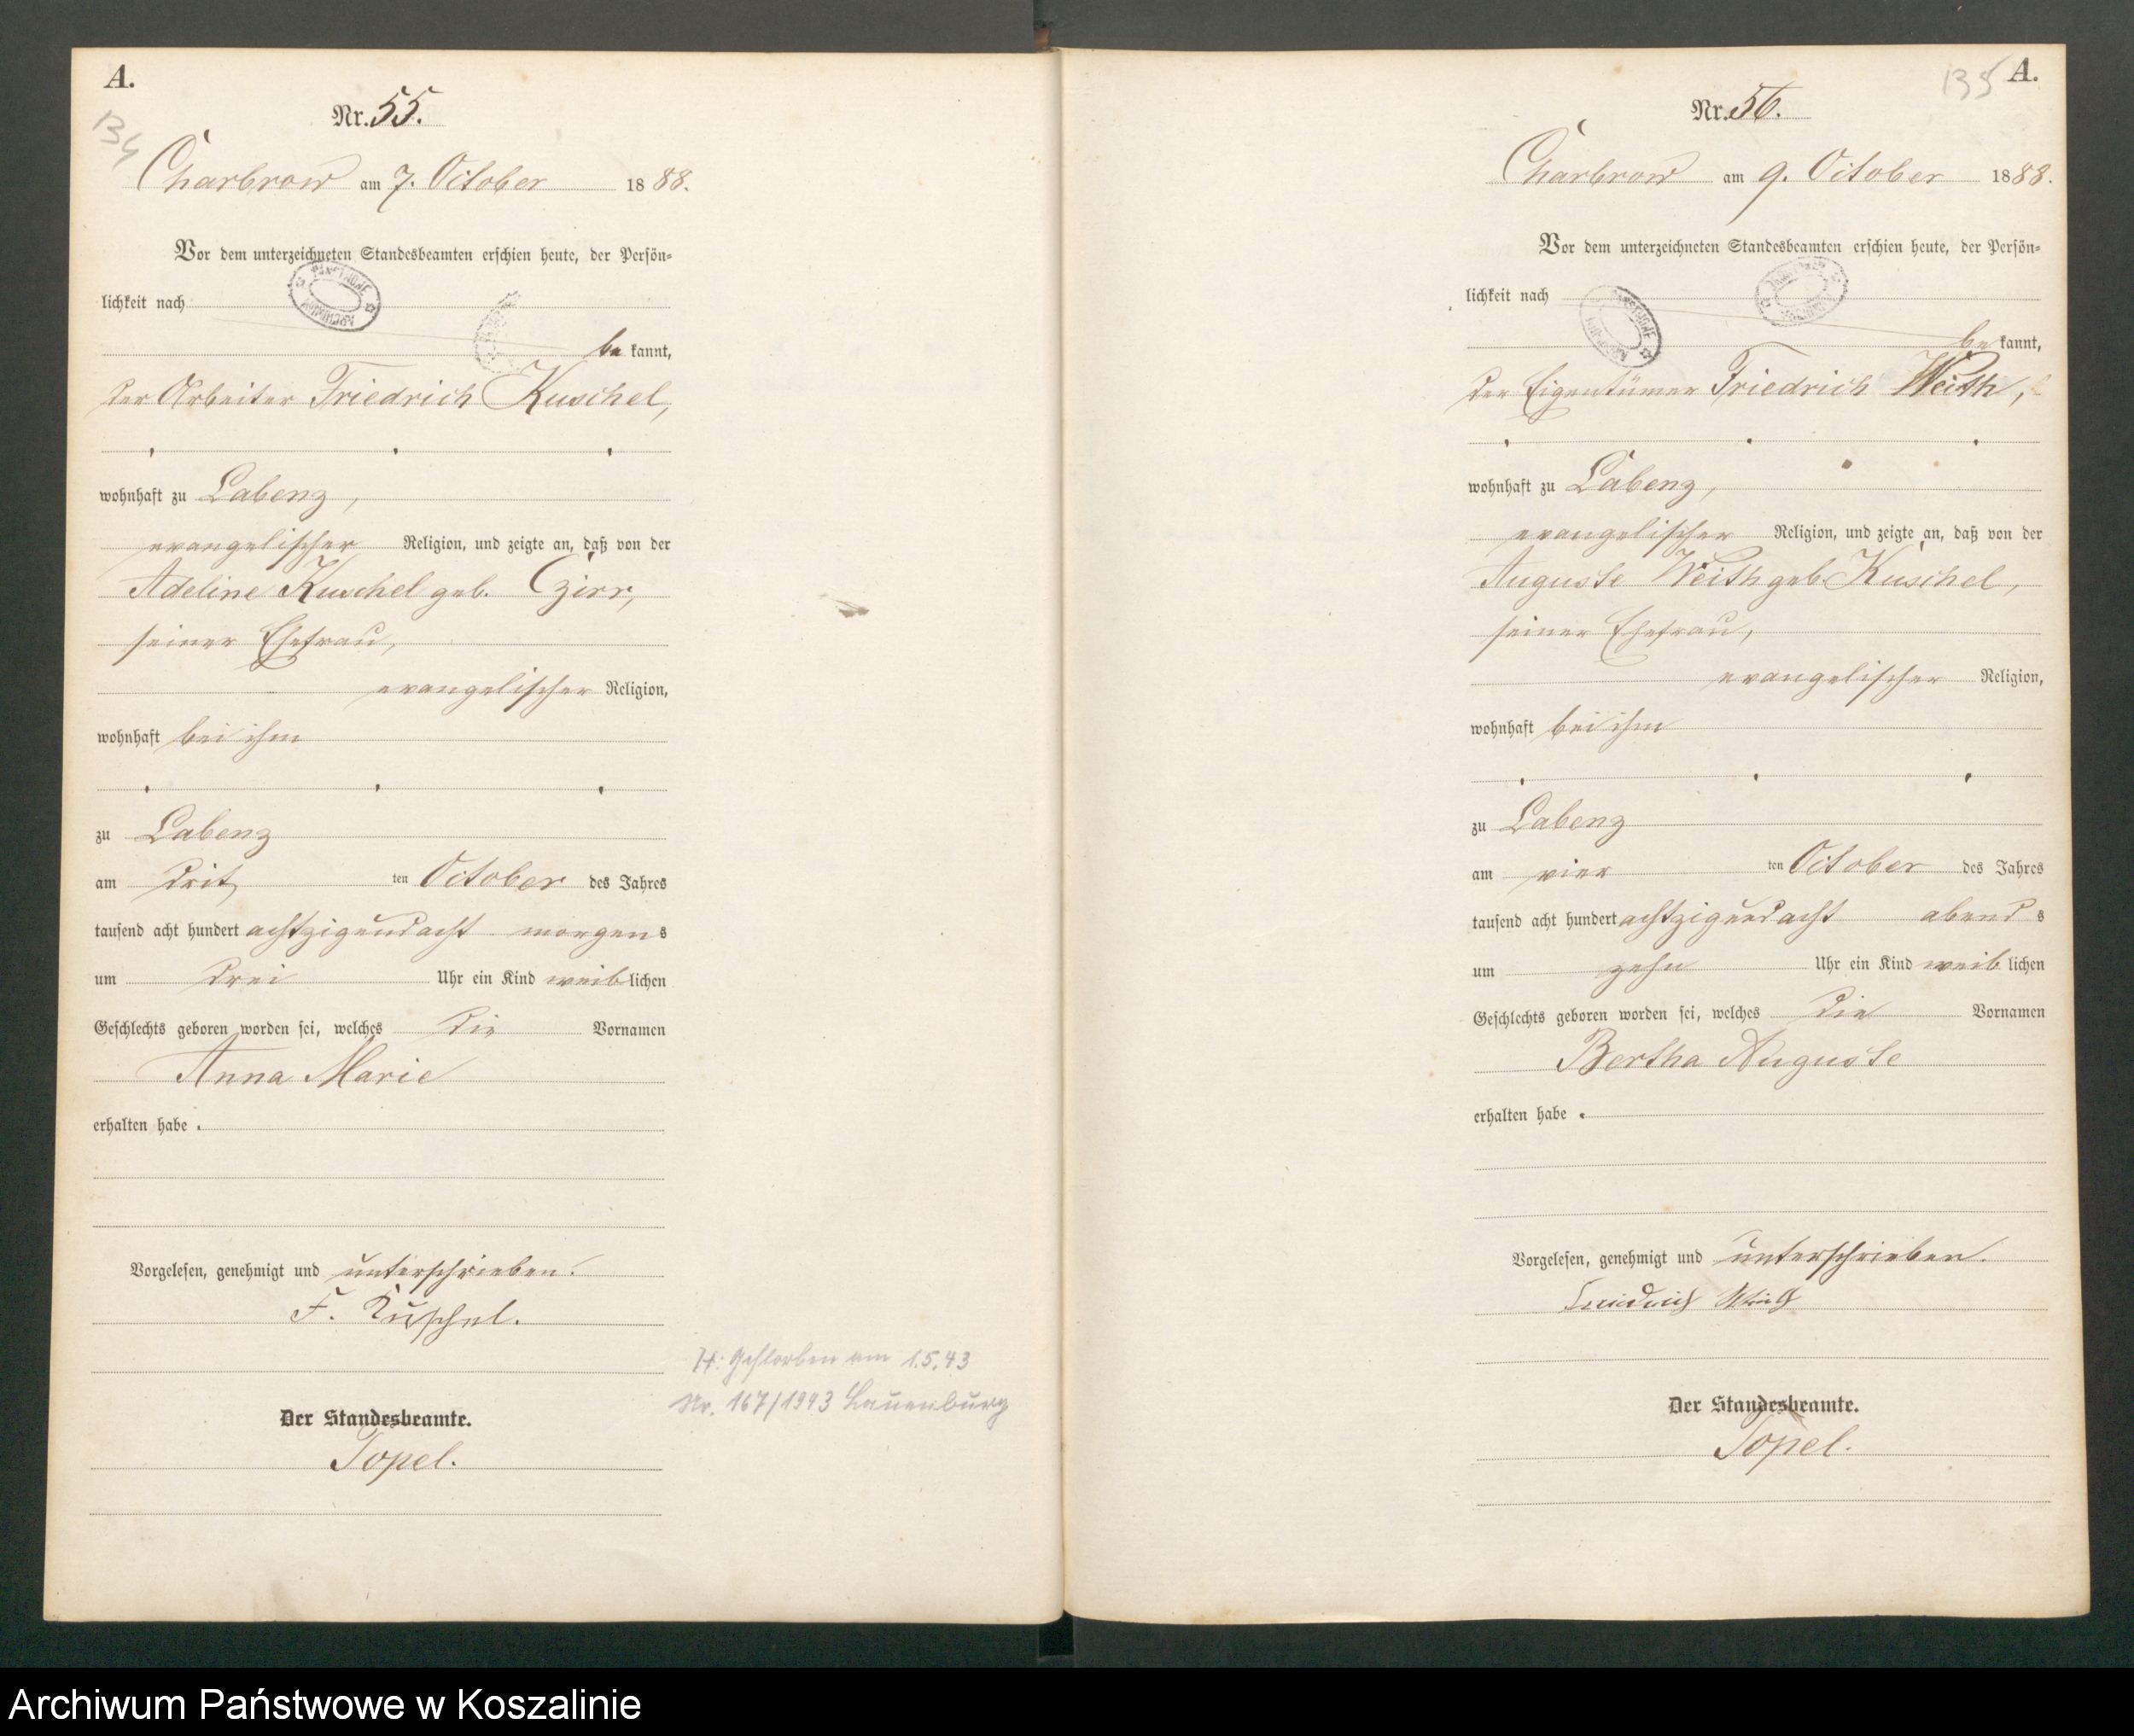 A.
134
Nr. 55.
Charbrow am 7. October 1888.
Vor dem unterzeichneten Standesbeamten erschien heute, der Persön-
lichkeit nach
be kannt,
der Arbeiter Friedrich Kuschel,
wohnhaft zu Labenz,
evangelischer Religion, und zeigte an, daß von der
Adeline Kuschel geb. Czirr,
seiner Ehefrau,
evangelischer Religion,
wohnhaft bei ihm
zu Labenz
am drit ten October des Jahres
tausend acht hundert achtzigundacht morgens
um drei Uhr ein Kind weiblichen
Geschlechts geboren worden sei, welches die Vornamen
Anna Marie
erhalten habe.
Vorgelesen, genehmigt und unterschrieben.
F. Kuschel.
H: Gestorben am 1.5.43
Nr. 167/1943 Lauenburg
Der Standesbeamte.
Topel.
135 A.
Nr. 56.
Charbrow am 9. October 1888.
Vor dem unterzeichneten Standesbeamten erschien heute, der Persön-
lichkeit nach
be kannt,
der Eigentümer Friedrich Weith,
wohnhaft zu Labenz,
evangelischer Religion, und zeigte an, daß von der
Auguste Weith geb. Kuschel,
seiner Ehefrau,
evangelischer Religion,
wohnhaft bei ihm
zu Labenz
am vier ten October des Jahres
tausend acht hundert achtzigundacht abends
um zehn Uhr ein Kind weiblichen
Geschlechts geboren worden sei, welches die Vornamen
Bertha Auguste
erhalten habe.
Vorgelesen, genehmigt und unterschrieben.
Friedrich Weith
Der Standesbeamte.
Topel.
Archiwum Państwowe w Koszalinie